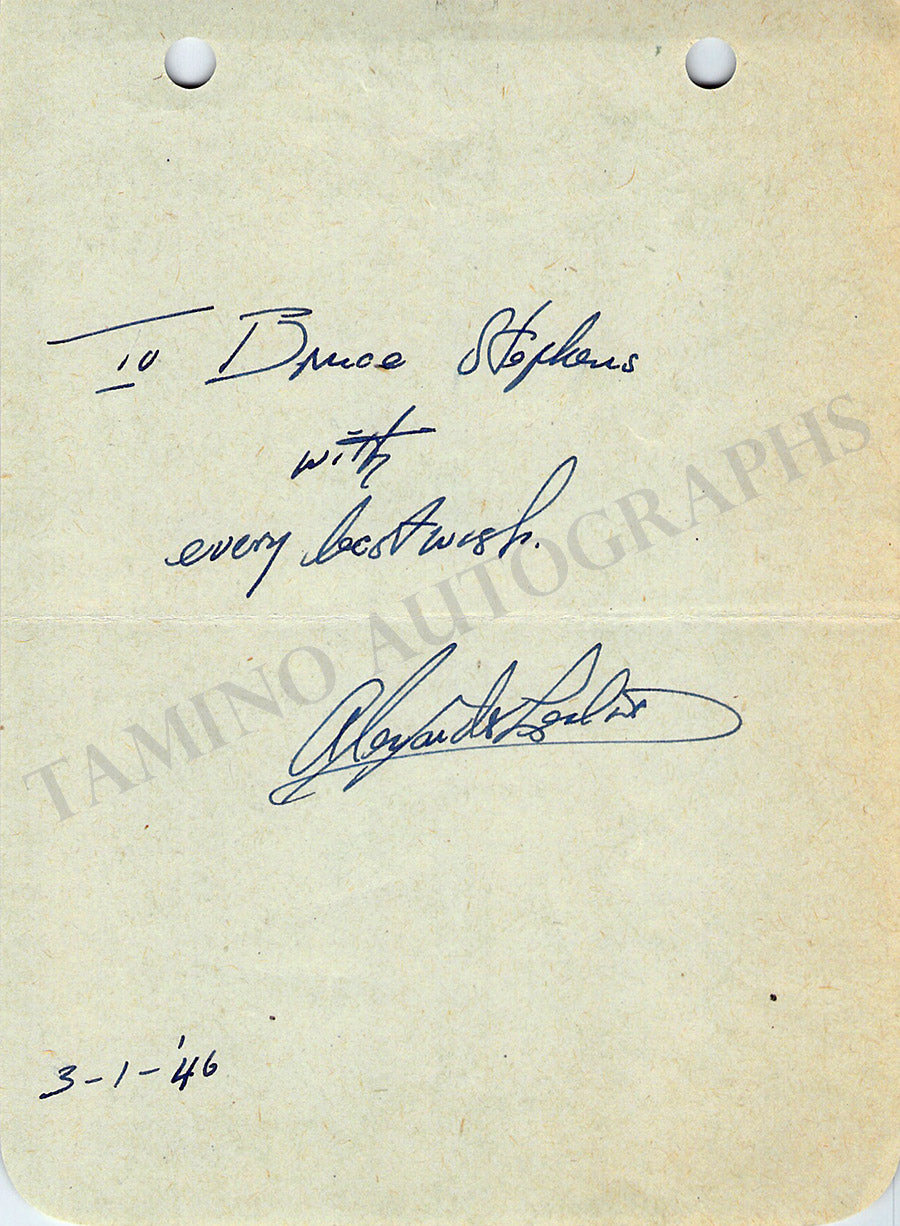 To Bruce Stephens
with
every best wish.
Alexander
3-1-'46
TAMINO AUTOGRAPHS